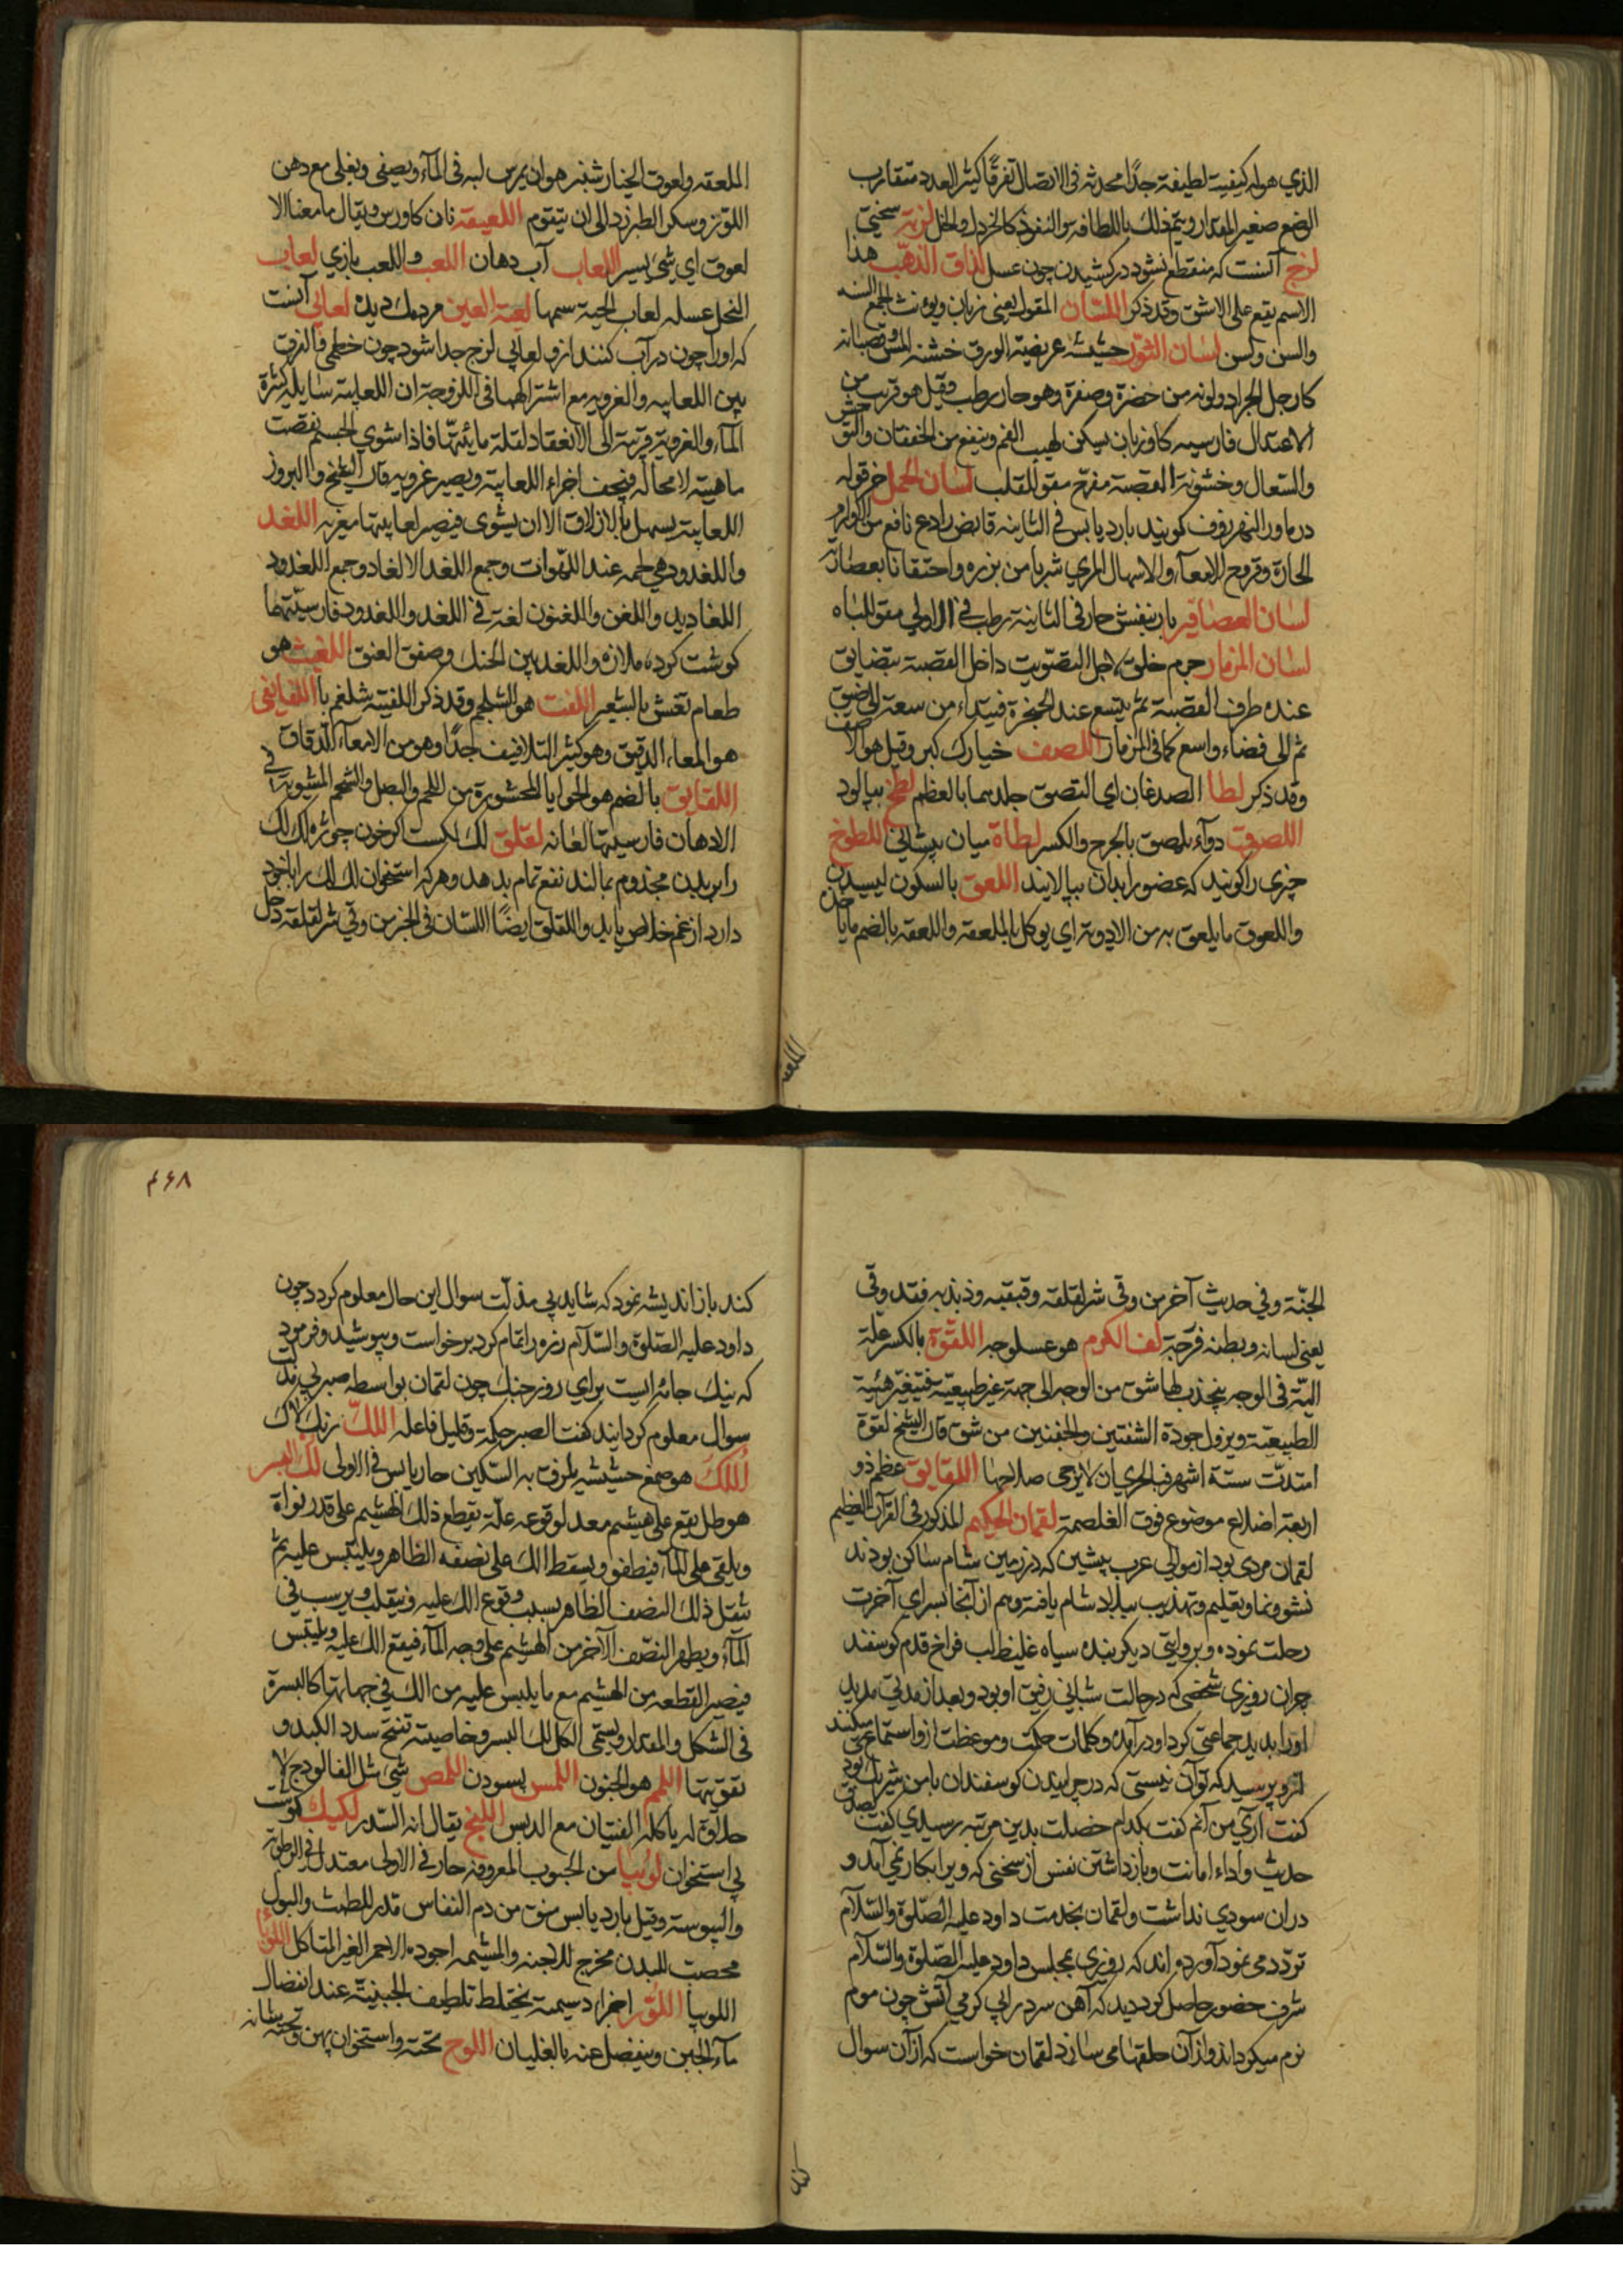 الذي هو له كيفيت لطيفة جدًا محدثه في الاتصال تفرقًا كثير العدد متقارب
الوضع صغير المقدار ويتم ذلك باللطافه سو النفوذ كالخردل والخل لزبة سختي
لزج آنست كه منقطع نشود در كشيدن چون عسل لزاق الذهب هذا
الاسم يقع على الاشق وقد ذكر اللسان المقول يعني زبان ويؤنث الجمع السنه
والسن ولسن لسان الثور حشيشه عريضة الورق خشنه المس وقضبانه
كارجل الجراد ولونه من خضرة وصفرة وهو حار رطب وقيل هو قريب من
الاعتدال فارسيه كاوزبان يسكن لهيب الفم وينفع من الخفقان والتوحش
والسعال وخشونة القصبة مفرح مقو للقلب لسان الحمل خرقوله
در ماورالنهر زوف كويند بارد يابس في الثانيه قابض رادع نافع من الاورام
الحارة وقروح الامعآء والاسهال المري شربا من بزره واحتقانا بعصارته
لسان العصافير بار بنفش حار في الثانية رطب في الاولي مقو للباه
لسان المزمار جرم خلق لاجل التصويت داخل القصبة يتضايق
عنده طرف القصبة ثم يتسع عند الحنجرة فيبتداء من سعة الى ضيق
ثم الى فضاء واسع كما في المزمار اللصف خيارك كبر وقيل هو الاصف
وقد ذكر لطا الصدغان اي التصق جلدهما بالعظم لطخ بيالود
اللصوق دوآء يلصق بالجرح والكسر لطاة ميان پيشاني اللطوخ
چيزي را كويند كه عضو را بدان بيالايند اللعق بالسكون ليسيدن
واللعوق ما يلعق به من الادوية اي يوكل بالملعقه واللعقه بالضم ما ياخذ
الملعقه
الملعقه ولعوق الخيار شنبر هو ان يمرس لبه في المآء ويصفى ويغلى مع دهن
اللوز وسكر الطبرزد الى ان يتقوم اللعيقة نان كاورس ويقال ما معنا الا
لعوق اي شيء يسير اللعاب آب دهان اللعب واللعب بازي لعاب
النحل عسله لعاب الحية سمها لعبة العين مردمك ديده لعابي آنست
كه اورا چون در آب كنند ازو لعابي لزج جدا شود چون خطمي والفرق
بين اللعابيه والغرويه مع اشتراكهما في اللزوجة ان اللعابية سايليه كثرة
المآء والغروية قريبة الى الانعقاد لقلة مائيتها فاذا شوي الجسم نقصت
ماهيته لا محاله فيجف اجزاء اللعابية ويصير غرويه قال الشيخ والبروز
اللعابية يسهل بالازلاق الا ان يشوى فيصير لعابيتها مغريه اللغد
واللغدود هي لحمه عند اللهوات وجمع اللغد الالغاد وجمع اللغدود
اللغاديد واللغن واللغنون لغة في اللغد واللغدود فارسيتها
كوشت كرد ملازه واللغد بين الحنك وصفق العنق اللغيث هو
طعام تغش بالشعير اللفت هو الشلجم وقد ذكر اللفيته شلغم با اللفايفي
هو المعاء الدقيق وهو كثير التلافيف جدًا وهو من الامعآء الدقاق
اللقانق بالضم هو الحوايا المحشورة من اللحم والبصل والشحم المشويه في
الادهان فارسيتها لغانه لقلق لك لكست اكر خون چوژه لك لك
را بر بدن مجذوم بمالند نفع تمام بدهد وهر كه استخوان لك لك را باخود
دارد از غم خلاص يابد واللقلق ايضًا اللسان في الخبر من وقي شر لقلقه دخل
٤٦٨
الجنّة وفي حديث آخر من وقى شر لقلقه وقبقبه وذبذبه فقد وقى
يعني لسانه وبطنه فرجه لف الكروم هو عسلوجه اللقوة بالكسر علة
الية في الوجه ينجذب لها شق من الوجه الى جهة غير طبيعية فتغير هيئته
الطبيعية ويزول جودة الشفتين والجفنين من شق قال الشيخ لقوة
امتدت ستة اشهر فبالحري ان لا يرجى صلاحها اللقايق عظم ذو
اربعة اضلاع موضوع فوق الغلصمة لقمان الحكيم المذكور في القرآن العظيم
لقمان مردى بود از موالى عرب پيشين كه در زمين شام ساكن بودند
نشو ونما وتعليم وتهذيب ببلاد شام يافته وهم از آنجا بسراي آخرت
رحلت نموده وبروايتي ديكر بنده سياه غليظ لب فراخ قدم كوسفند
چران روزي شخصى كه در حالت شباني رفيق او بود وبعد از مدتي مديد
اورا بديد جماعتي كرد او در آمده وكلمات حكمت وموعظت ازو استماع ميكنند
ازو پرسيد كه تو آن نيستى كه در چرانيدن كوسفندان با من شريك بودي
كفت آري من آنم كفت بكدام خصلت بدين مرتبه رسيدي كفت بصدق
حديث واداء امانت وبازداشتن نفس از سخنى كه ويرا بكار نمي آمد و
دران سودي نداشت ولقمان بخدمت داود عليه الصلوة والسلام
تردد مى نمود آورده اند كه روزى بمجلس داود عليه الصلوة والسلام
شرف حضور حاصل كرد ديد كه آهن سرد را بي كرمي آتش چون موم
نرم ميكرداند واز آن حلقها مى سازد لقمان خواست كه از آن سوال
كند
كند باز انديشه نمود كه شايد بي مذلت سوال اين حال معلوم كردد چون
داود عليه الصلوة والسلام زره را تمام كرد برخواست وبپوشيد وفرمود
كه نيك جامه ايست براي روز جنك چون لقمان بواسطه صبر بي مذلت
سوال معلوم كردانيد كفت الصبر حكمة وقليل فاعله اللك رنك لاك
اللك هو صمغ حشيشه يلزق به السكين حار يابس في الاولى لك البسر
هو طل يقع على هشيم معد لوقوعه علة يقطع ذلك الهشيم على قدر نواة
ويلقى على المآء فيطفو ويسقط اللك على نصفه الظاهر ويلتبس عليه ثم
يثقل ذلك النصف الظاهر بسبب وقوع اللك عليه وينقلب ويرسب في
المآء ويظهر النصف الآخر من الهشيم على وجه المآء فيقع اللك عليه ويلتبس
فيصير القطعه من الهشيم مع ما يلبس عليه من اللك في جهاتها كالبسرة
في الشكل والمقدار ويسمى الكل لك البسر وخاصيته تفتح سدد الكبد و
تقويتها اللمم هو الجنون اللمس پسودن اللمص شي مثل الفالودج لا
حلاوة له ياكله الفتيان مع الدبس اللنج يقال انه السدر لكيك كوشت
بي استخوان لوبيا من الحبوب المعروفه حار في الاولى معتدل في الرطوبة
واليبوسة وقيل بارد يابس منق من دم النفاس مدر للطمث والبول
مخصب للبدن مخرج للاجنه والمشيمه اجوده الاحمر الغير المتاكل اللوباء
اللوبيا اللور اجزاء دسيمة يختلط تلطيف الجبنية عند انفصال
مآء الجبن وينفصل عنه بالغليان اللوح تخته واستخوان پهن وتخته شانه